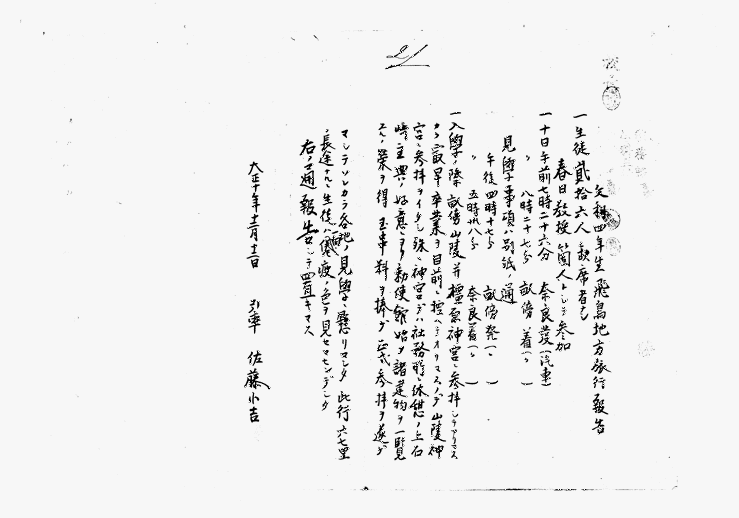 文科四年生飛鳥地方旅行報告
一 生徒貳拾六人 缺席者
春日教授箇人トシテ参加
一 十日午前七時二十六分 奈良發(汽車)
〃 八時二十七分 畝傍着(〃)
見學事項ハ別紙ノ通
午後四時十七分 畝傍発(〃)
〃 五時卅八分 奈良着(〃)
一 入學ノ際 畝傍山陵并橿原神宮ニ参拝
最早卒業ヲ目前ニ控ヘテオリマスノデ山陵神
宮ニ参拝ヲイタシ殊ニ神宮デハ社務所ニ休憩ノ上石
崎主典ノ好意ニヨリ勅使館始メ諸建物ヲ一覧
ノ榮ヲ得 玉串料ヲ捧ゲ正式参拝ヲ遂ゲ
マシテソレカラ各地ノ見學ニ懸リマシタ 此行六七里
長途 生徒ハ 疲ノ色ヲ見セマセンデシタ
右ノ通報告シテ置キマス
大正十年十二月十二日 引率 佐藤小吉